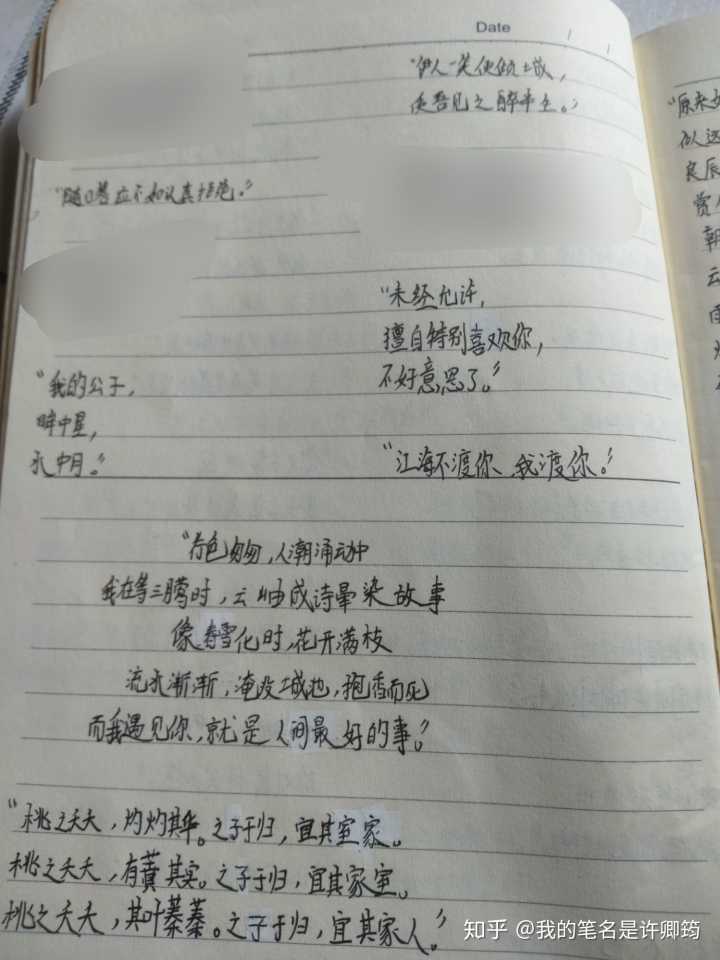 Date
“伊人一笑便倾城，
使吾见之醉半生。”
“随口答应不如认真拒绝。”
“未经允许，
擅自特别喜欢你，
不好意思了。”
“我的公子，
眸中星，
水中月。”
“江海不渡你、我渡你。”
“行色匆匆，人潮涌动中
我在等三月莺时，云岫成诗晕染故事
像春雪化时，花开满枝
流水渐渐，淹没城池，抱香而死
而我遇见你，就是人间最好的事。”
“桃之夭夭，灼灼其华。之子于归，宜其室家。
桃之夭夭，有蕡其实。之子于归，宜其家室。
桃之夭夭，其叶蓁蓁。之子于归，宜其家人。”
“原来
似
良辰
赏
朝
云
雨
知乎 @我的笔名是许卿筠